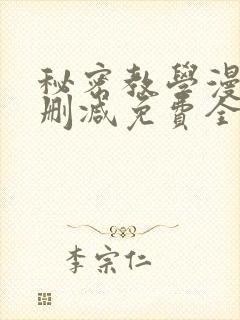 秘密教學漫
刪減免費全
李宗仁